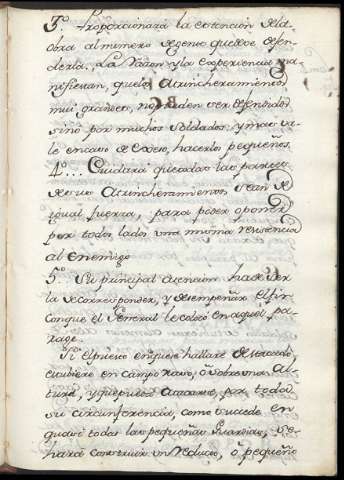 3º. Proporcionará la extencion dela
obra al numero de gente que deve defen
derla. La Razon y la experiencia ma
nifiestan, que los Atrincheramientos
mui grandes, no pueden ser defendidos
sino por muchos Soldados: y mas va
le en caso de exceso, hacerlos pequeños.
4º... Cuidará que todas las partes
de sus Atrincheramientos sean de
igual fuerza, para poder oponer
por todos lados una misma resistencia
al Enemigo
5º. Su principal atencion ha de ser
la de corresponder, y desempeñar el fin
con que el General le colocó en aquel pa
rage.
Si el puesto en que se hallare destacado,
estubiere en Campo Raso, ó sobre una Al
tura, y que pueda atacarse por toda
su circunferencia, como sucede en
quasi todas las pequeñas Guardias, se
hará construir un Reducto, ó pequeño